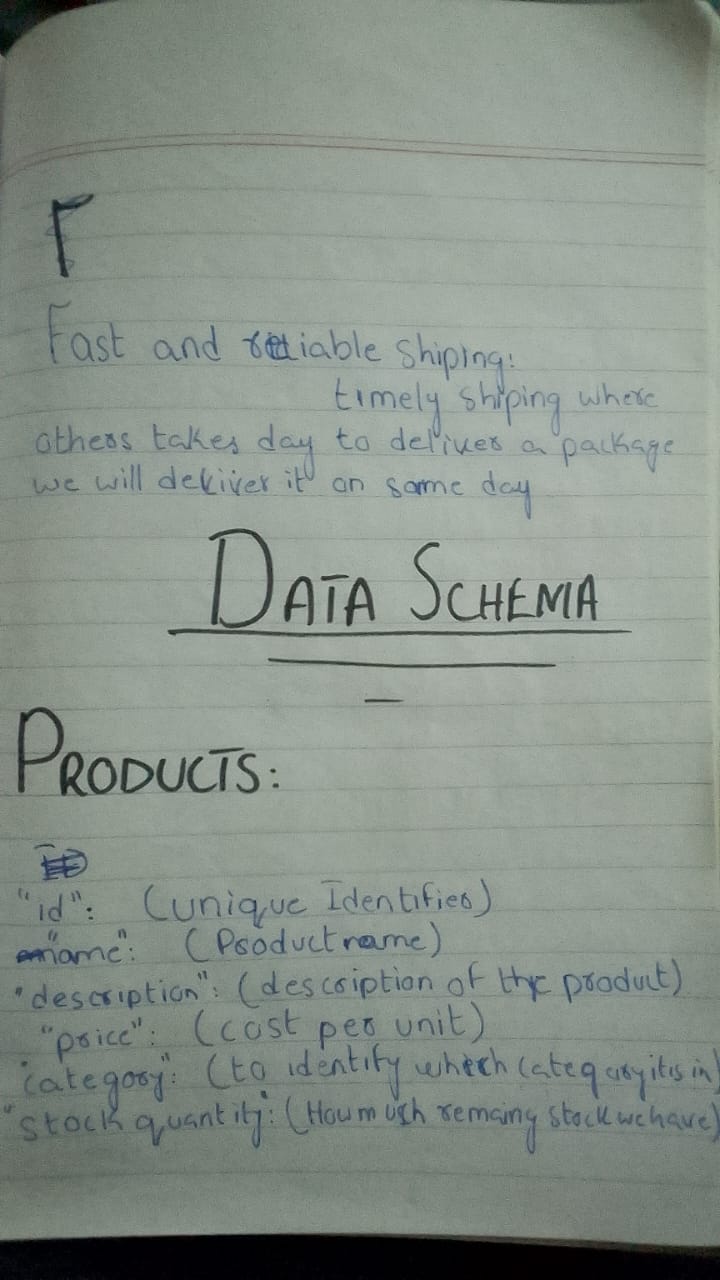 Fast and reliable shiping:
timely shiping where
others takes day to deliver a package
we will deliver it on same day
DATA SCHEMA
PRODUCTS:
"id": (unique Identifier)
"name": (Product name)
"description": (description of the product)
"price": (cost per unit)
"category": (to identify which category it is in)
"stock quantity": (How much remaing stock we have)